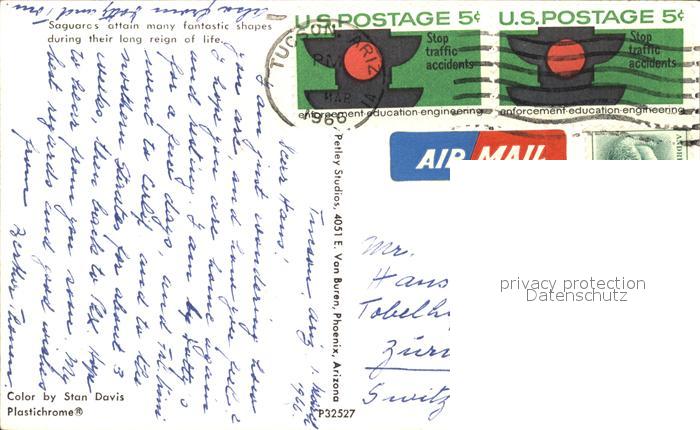 Also from Dotty and Tom
Saguaro's attain many fantastic shapes
during their long reign of life.
U.S. POSTAGE 5¢
Stop
traffic
accidents
enforcement·education·engineering
U.S. POSTAGE 5¢
Stop
traffic
accidents
enforcement·education·engineering
TUCSON, ARIZ
PM
MAR
1966
AIR MAIL
Tucson, Ariz 1. March
1966.
Dear Hans!
I am just wondering how
you are, and how you feel.
I hope you are home again
and resting. I am by Dotty's
for a few days, and
went to Calif and to the
northern States for about 3
weeks, then back to Pak. Hope
to hear from you soon. My
best regards and good wishes
from
Petley Studios, 4051 E. Van Buren, Phoenix, Arizona
Mr.
Hans
Tobelh
Züri
Switz
privacy protection
Datenschutz
Color by Stan Davis
Plastichrome®
P32527